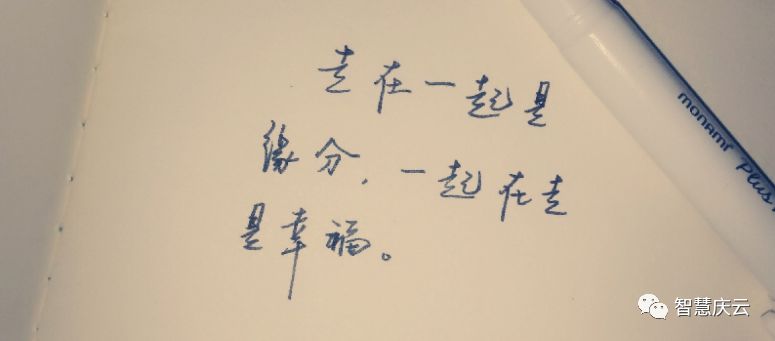 走在一起是
缘分，一起在走
是幸福。
monami Plus
智慧庆云